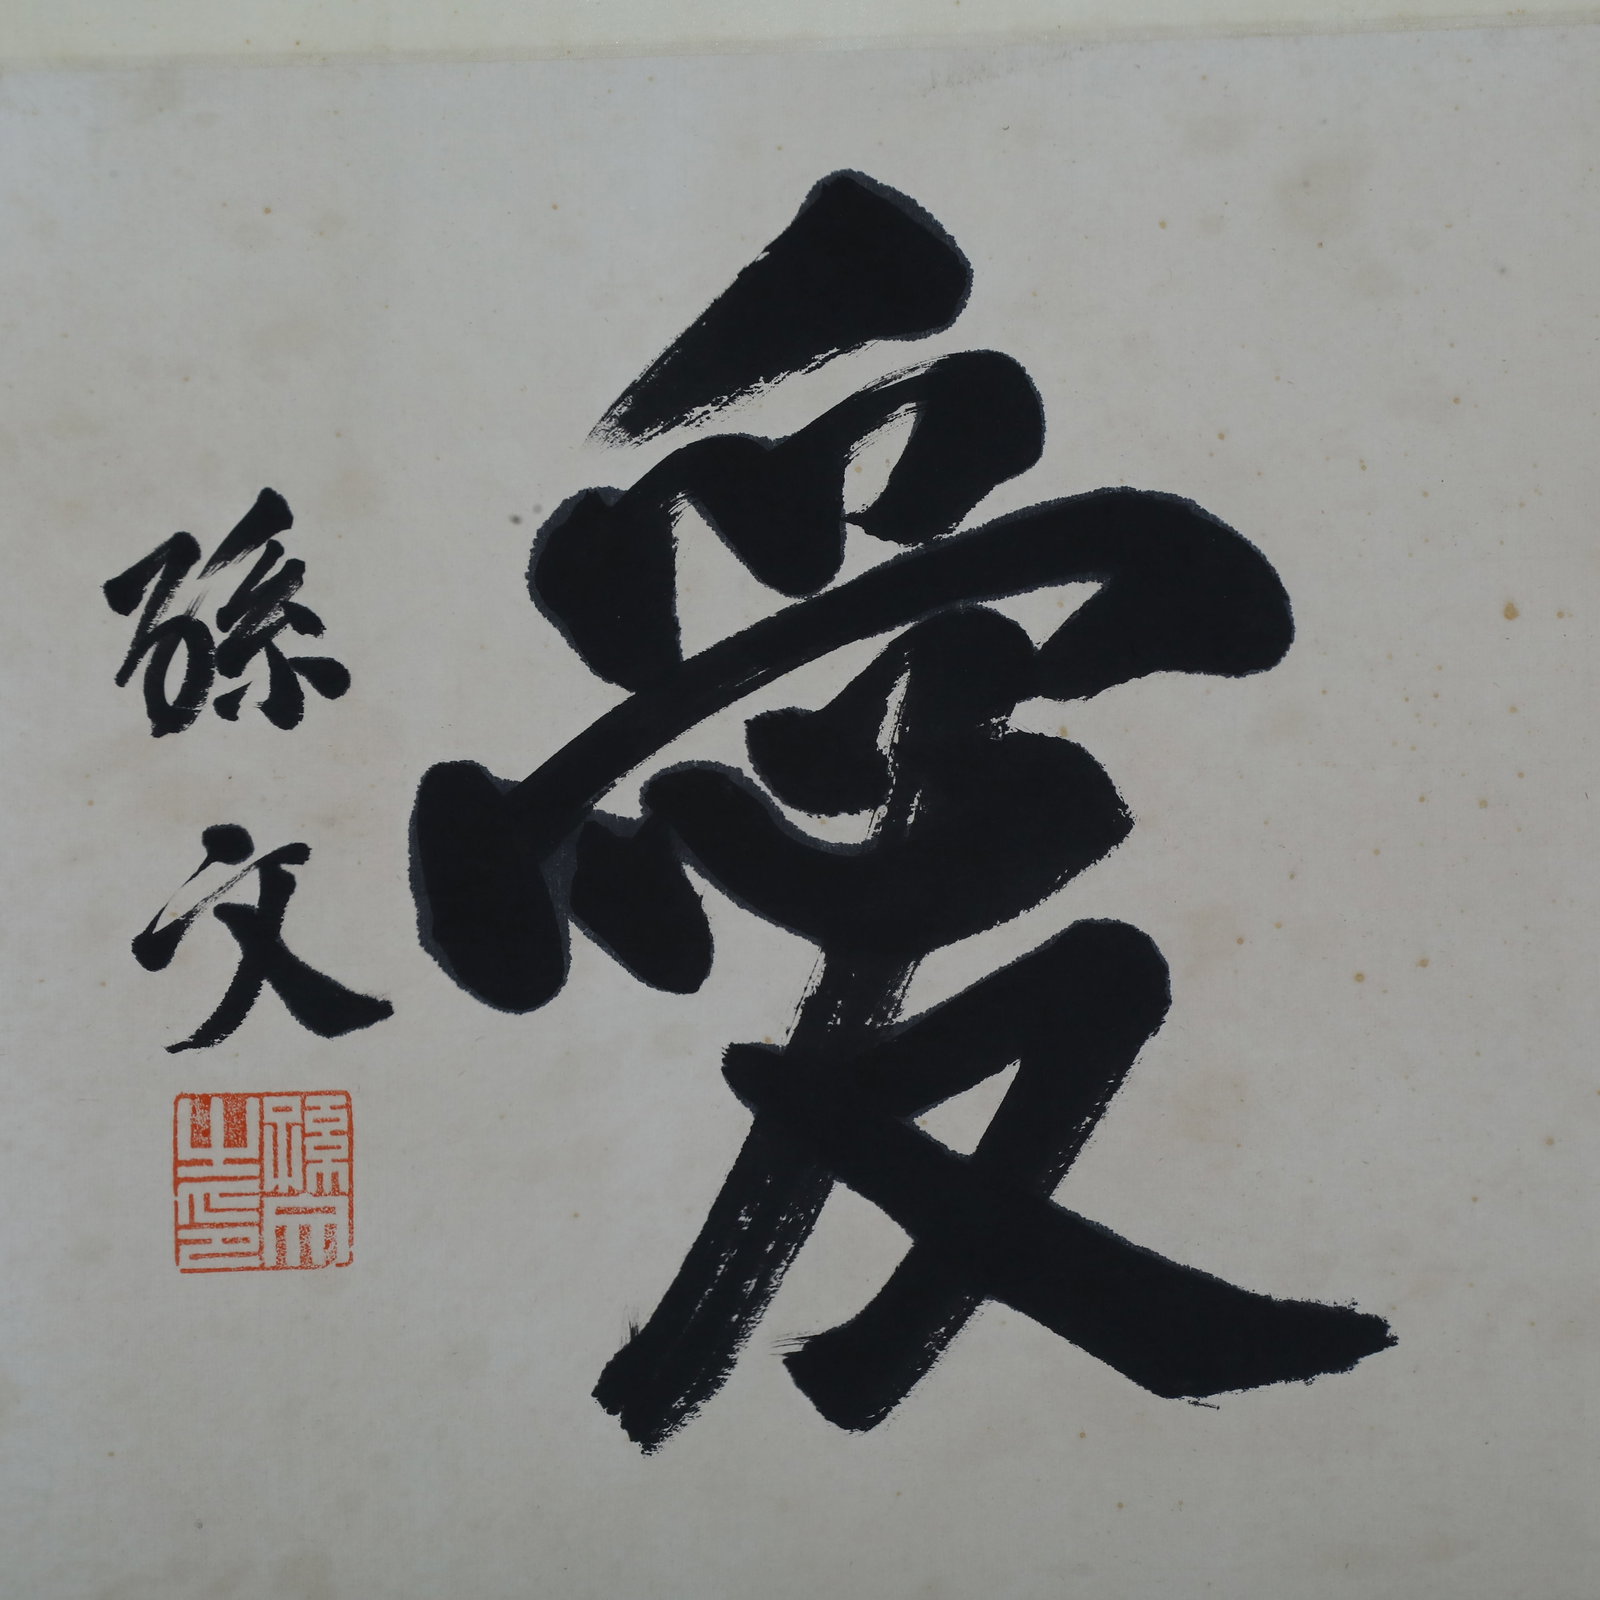 愛
孫文
孫文之印